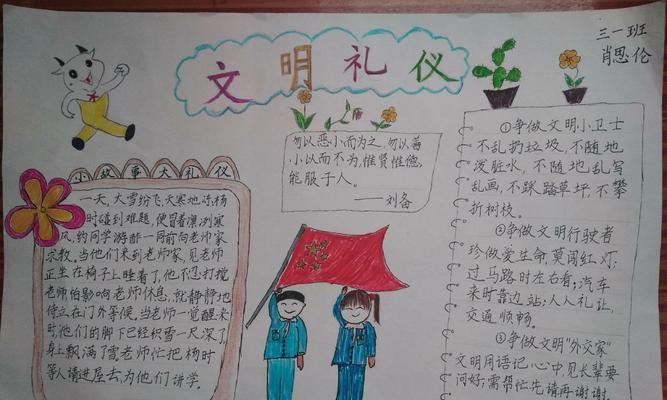 文明礼仪
三一班
肖思伦
小故事大礼仪
一天,大雪纷飞,天寒地冻,杨
时碰到难题,便冒着凛冽寒
风,约同学游酢一同前向老师家
求教。当他们来到老师家,见老师
正坐在椅子上睡着了,他不忍打搅
老师怕影响老师休息,就静静地
侍立在门外等候。当老师一觉醒来
时,他们的脚下已经积雪一尺深了,
身上飘满了雪。老师忙把杨时
等人请进屋去,为他们讲学。
勿以恶小而为之,勿以善
小以而不为,惟贤惟德,
能服于人。
——刘备
①争做文明小卫士
不乱扔垃圾,不随地
泼脏水,不随地乱写
乱画,不踩踏草坪,不攀
折树枝。
②争做文明行驶者
珍做爱生命,莫闯红灯,
过马路时左右看;汽车
来时靠边站;人人礼让,
交通顺畅。
③争做文明"外交家"
文明用语记心中,见长辈要
问好;需帮忙先请再谢谢。